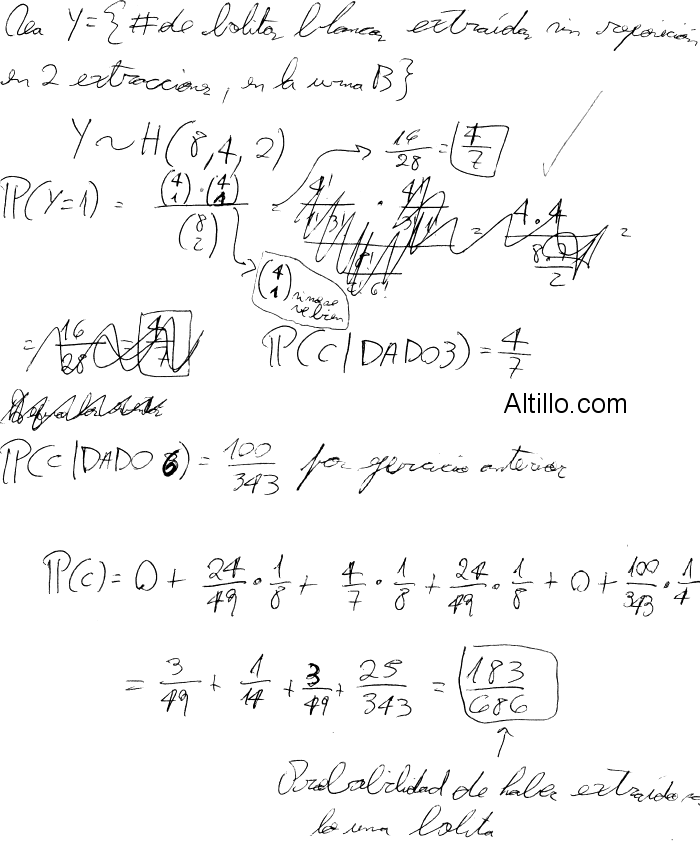 Sea Y={# de bolitas blancas extraídas sin reposición
en 2 extracciones, en la urna B}
Y~H(8,4,2) → 16/28 = 4/7
P(Y=1) = (4 1)·(4 1)/(8 2) = = 4·4 / =
(4 1) si no se ve bien
= 16/28 = 4/7 P(C|DADO3) = 4/7
Altillo.com
P(C|DADO 6) = 100/343 por ejercicio anterior
P(C) = 0 + 24/49 · 1/8 + 4/7 · 1/8 + 24/49 · 1/8 + 0 + 100/343 · 1/4
= 3/49 + 1/14 + 3/49 + 25/343 = 183/686
Probabilidad de haber extraído so
lo una bolita